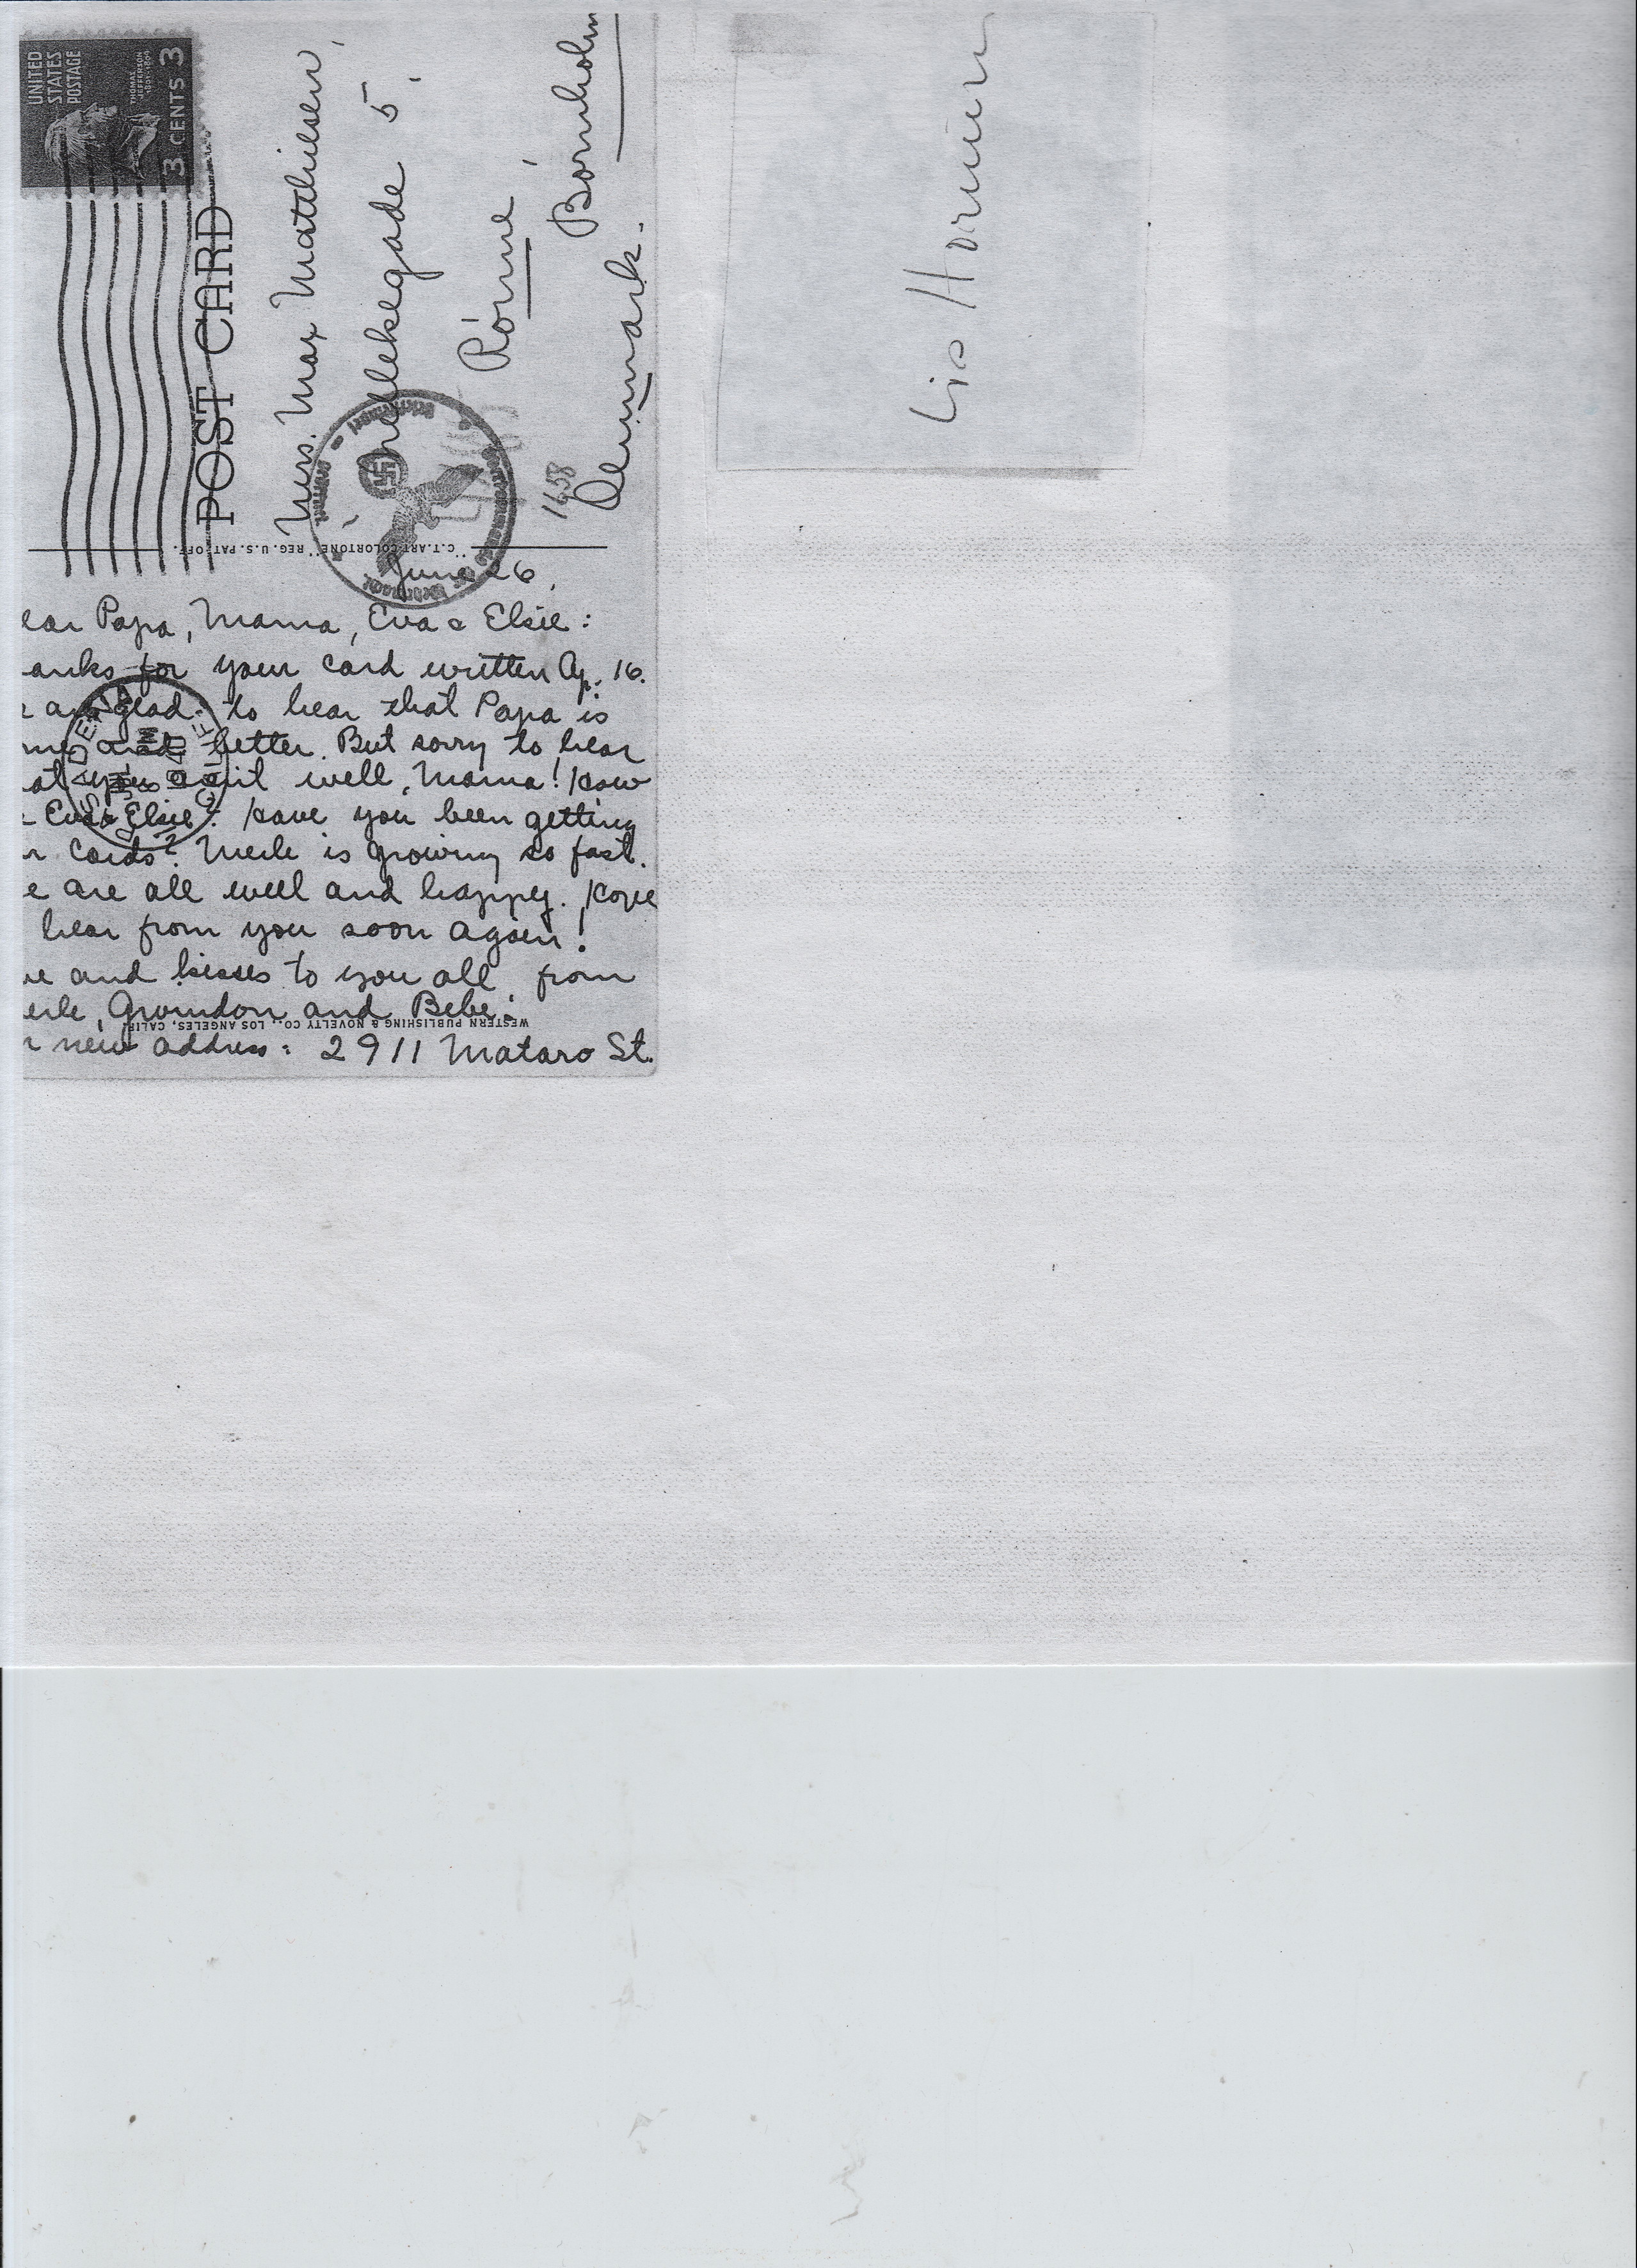 UNITED
STATES
POSTAGE
THOMAS
JEFFERSON
1801-1809
3 CENTS 3
POST CARD
Mrs. Max Mathiesen,
5,
Rönne,
Bornholm
Denmark.
1658
"C.T.ART-COLORTONE" REG. U.S. PAT. OFF.
June 26,
ear Papa, Mama, Eva & Elsie:
anks for your card written Ap. 16.
e are glad to hear that Papa is
and better. But sorry to hear
at you ain't well, Mama! How
Eva & Elsie? Have you been getting
r cards? Merle is growing so fast.
e are all well and happy. Hope
hear from you soon again!
ve and kisses to you all from
erle, Growdon and Bebe.
WESTERN PUBLISHING & NOVELTY CO., LOS ANGELES, CALIF.
r new address: 2911 Mataro St.
PASADENA
CALIF.
Lis